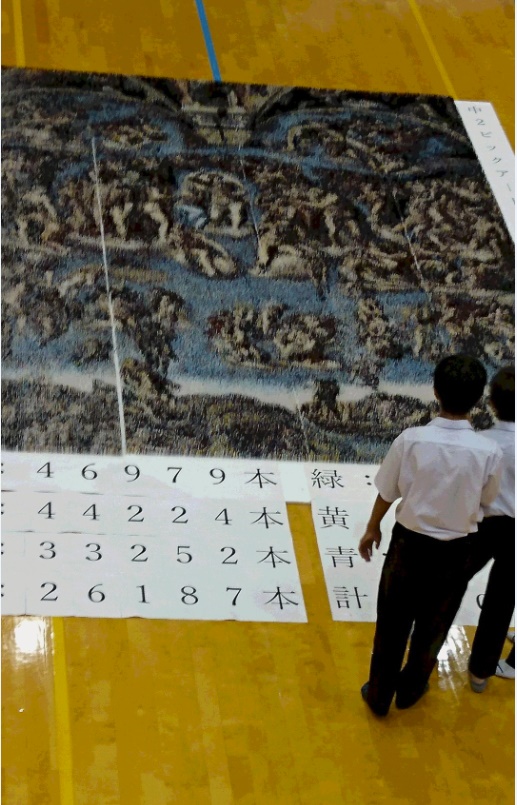 中2ビックアー
: 46979本
: 44224本
: 33252本
: 26187本
緑:
黄
青
計